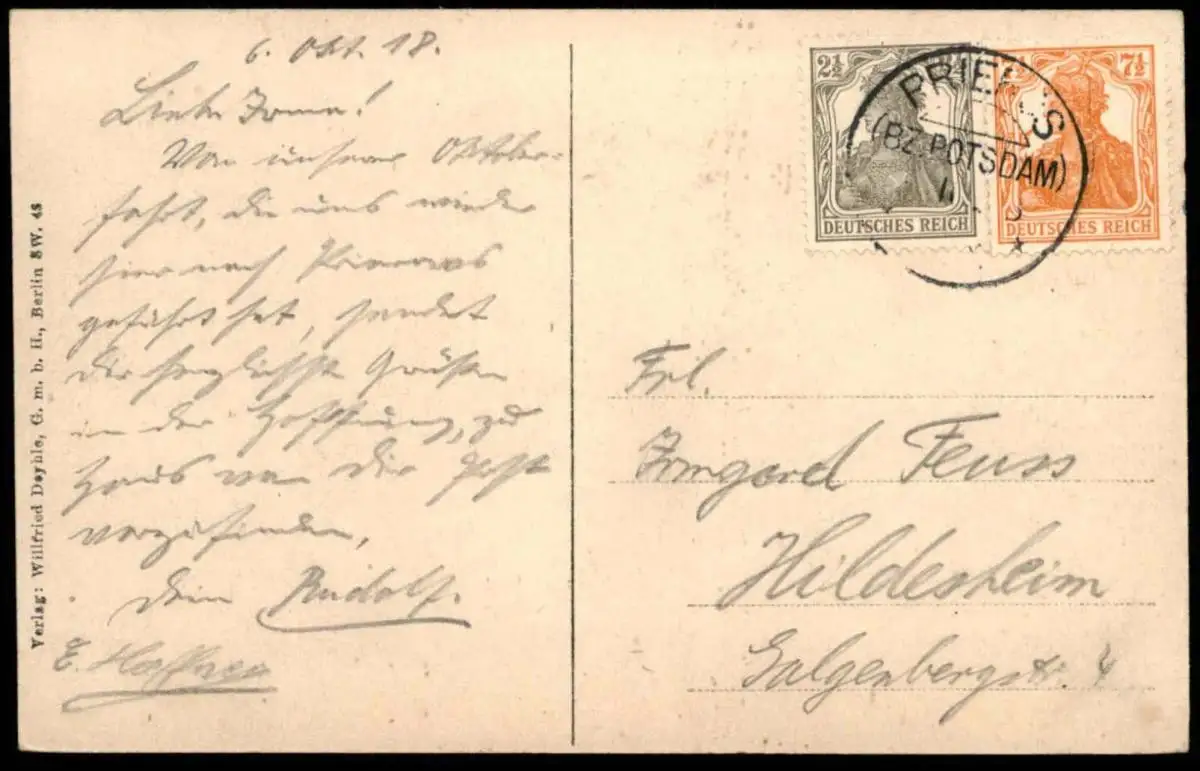 6. Okt. 18.
Liebe Irma!
Von unserer Oktober-
fahrt, die uns wieder
hier nach Prieros
geführt hat, sendet
die herzlichsten Grüße
in der Hoffnung, zu
Haus von Dir Post
vorzufinden,
Dein Rudolf.
E. Haffner
Verlag: Willfried Deyhle, G. m. b. H., Berlin SW. 48
2½
7½
DEUTSCHES REICH
DEUTSCHES REICH
PRIEROS
(BZ. POTSDAM)
Frl.
Irmgard Feuss
Hildesheim
Galgenbergstr. 4